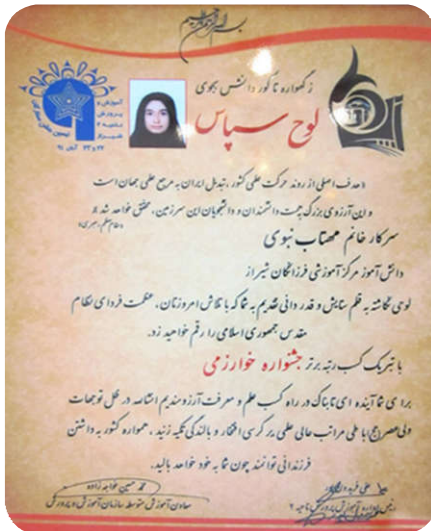 بسم الله الرحمن الرحیم
ز گهواره تا گور دانش بجوی
لوح سپاس
آموزش و
پرورش
ناحیه ۲
شیراز
۲۲ و ۲۳ آبان ۹۱
«هدف اصلی از روند حرکت علمی کشور، تبدیل ایران به مرجع علمی جهان است
و این آرزوی بزرگ به همت دانشمندان و دانشجویان این سرزمین، محقق خواهد شد.»
(مقام معظم رهبری)
سرکار خانم مهتاب نبوی
دانش آموز مرکز آموزشی فرزانگان شیراز
لوحی نگاشته به قلم ستایش و قدردانی تقدیم به شما که با تلاش امروزتان، عظمت فردای نظام
مقدس جمهوری اسلامی را رقم خواهید زد.
با تبریک کسب رتبه برتر جشنواره خوارزمی
برای شما آینده ای تابناک در راه کسب علم و معرفت آرزومندیم انشاءالله در ظل توجهات
ولی عصر(عج) با طی مراتب عالی علمی بر کرسی افتخار و بالندگی تکیه زنید، همواره کشور به داشتن
فرزندانی توانمند چون شما به خود خواهد بالید.
محمد حسین خواجه زاده
معاون آموزش متوسطه سازمان آموزش و پرورش
علی فریدونی
رئیس اداره آموزش و پرورش ناحیه ۲